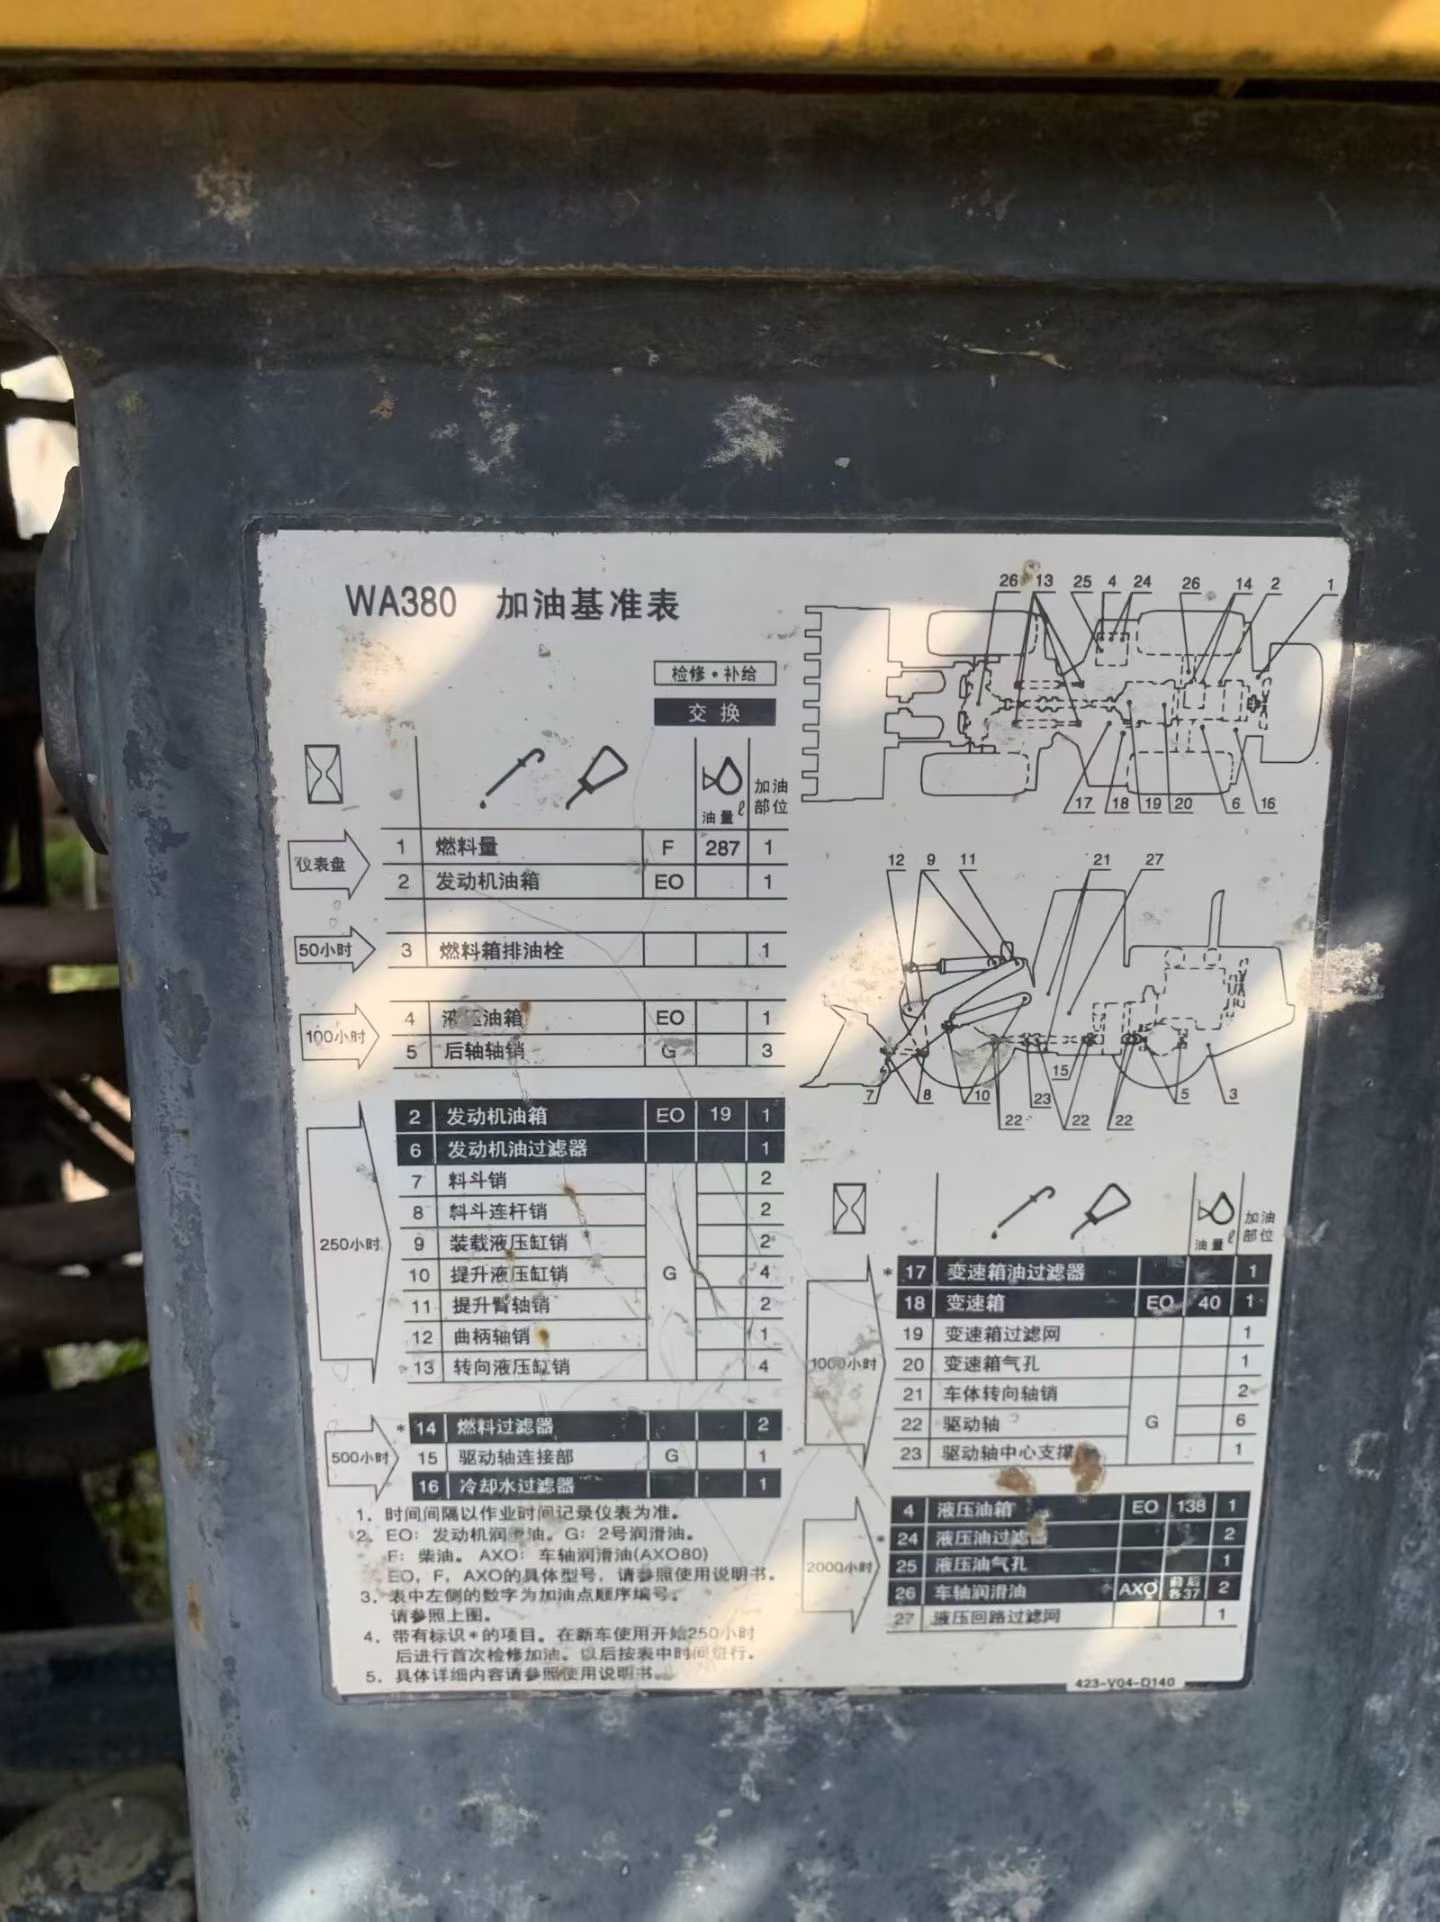 WA380 加油基准表
检修·补给
交换
油量 ℓ 加油部位
仪表盘
1 燃料量 F 287 1
2 发动机油箱 EO 1
50小时
3 燃料箱排油栓 1
100小时
4 液压油箱 EO 1
5 后轴轴销 G 3
250小时
2 发动机油箱 EO 19 1
6 发动机油过滤器 1
7 料斗销 2
8 料斗连杆销 2
9 装载液压缸销 2
10 提升液压缸销 G 4
11 提升臂轴销 2
12 曲柄轴销 1
13 转向液压缸销 4
500小时
*14 燃料过滤器 2
15 驱动轴连接部 G 1
16 冷却水过滤器 1
1. 时间间隔以作业时间记录仪表为准。
2. EO: 发动机润滑油。G: 2号润滑油。
F: 柴油。 AXO: 车轴润滑油(AXO80)
EO, F, AXO的具体型号, 请参照使用说明书。
3. 表中左侧的数字为加油点顺序编号。
请参照上图。
4. 带有标识*的项目。在新车使用开始250小时
后进行首次检修加油。以后按表中时间进行。
5. 具体详细内容请参照使用说明书。
26 13 25 4 24 26 14 2 1
17 18 19 20 6 16
12 9 11 21 27
15
7 8 10 23 5 3
22 22 22
油量 ℓ 加油部位
1000小时
*17 变速箱油过滤器 1
18 变速箱 EO 40 1
19 变速箱过滤网 1
20 变速箱气孔 1
21 车体转向轴销 2
22 驱动轴 G 6
23 驱动轴中心支撑 1
2000小时
4 液压油箱 EO 138 1
*24 液压油过滤器 2
25 液压油气孔 1
26 车轴润滑油 AXO 前后各37 2
27 液压回路过滤网 1
423-V04-D140